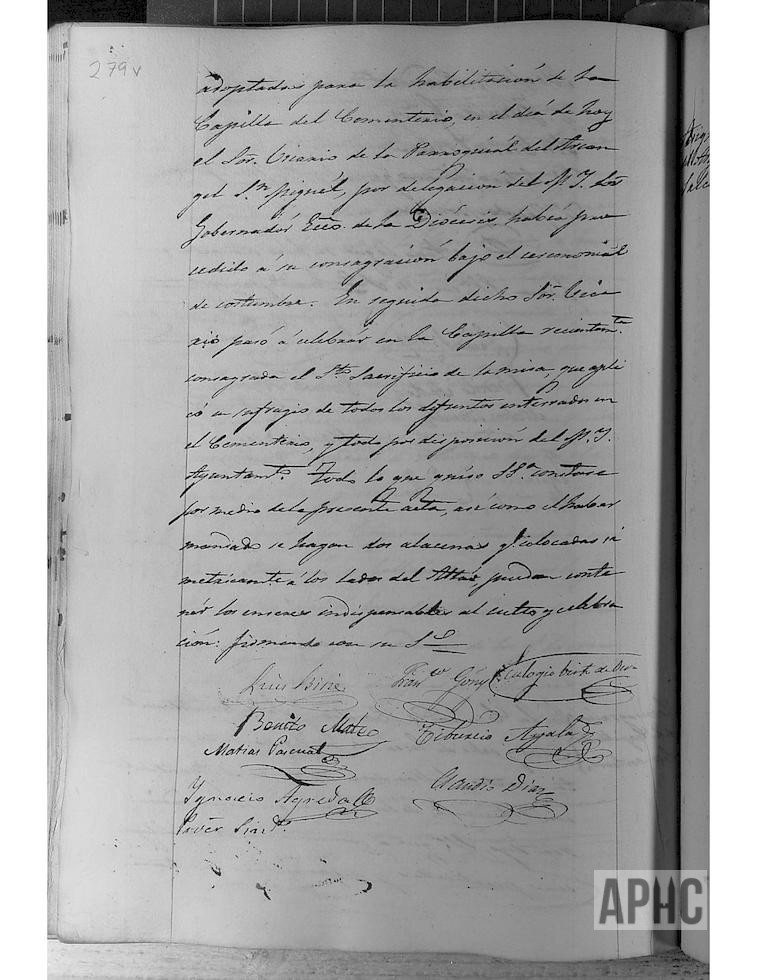 279v
adoptadas para la habilitación de la
Capilla del Cementerio, en el dia de hoy
el Sor. Vicario de la Parroquiál del Arcan
gel Sn. Miguél, por delegacion del M. I. Sor.
Gobernadór Ecco. de la Diócesis, habia pro
cedido á su consagración bajo el ceremoniál
de costumbre. En seguida dicho Sor. Vica
rio pasó á celebrár en la Capilla recientemte.
consagrada el Sto. Sacrificio de la misa, que apli
có en sufragio de todos los difuntos enterrados en
el Cementerio, y todo por disposición del M. I.
Ayuntamto. Todo lo que quiso SSa. constase
por medio de la presente acta, así como el haber
mandado se hagan dos alacenas qe. colocadas si
metricamte. á los lados del Altár puedan conte
nér los enseres indispensables al culto y celebra
ción: firmando con su S
Luis
Franco. Gony
Eulogio
Benito Mateo
Tiburcio Ayala
Matias Pascual
Claudio Diaz
Ygnacio Agreda
Sindo.
APHC